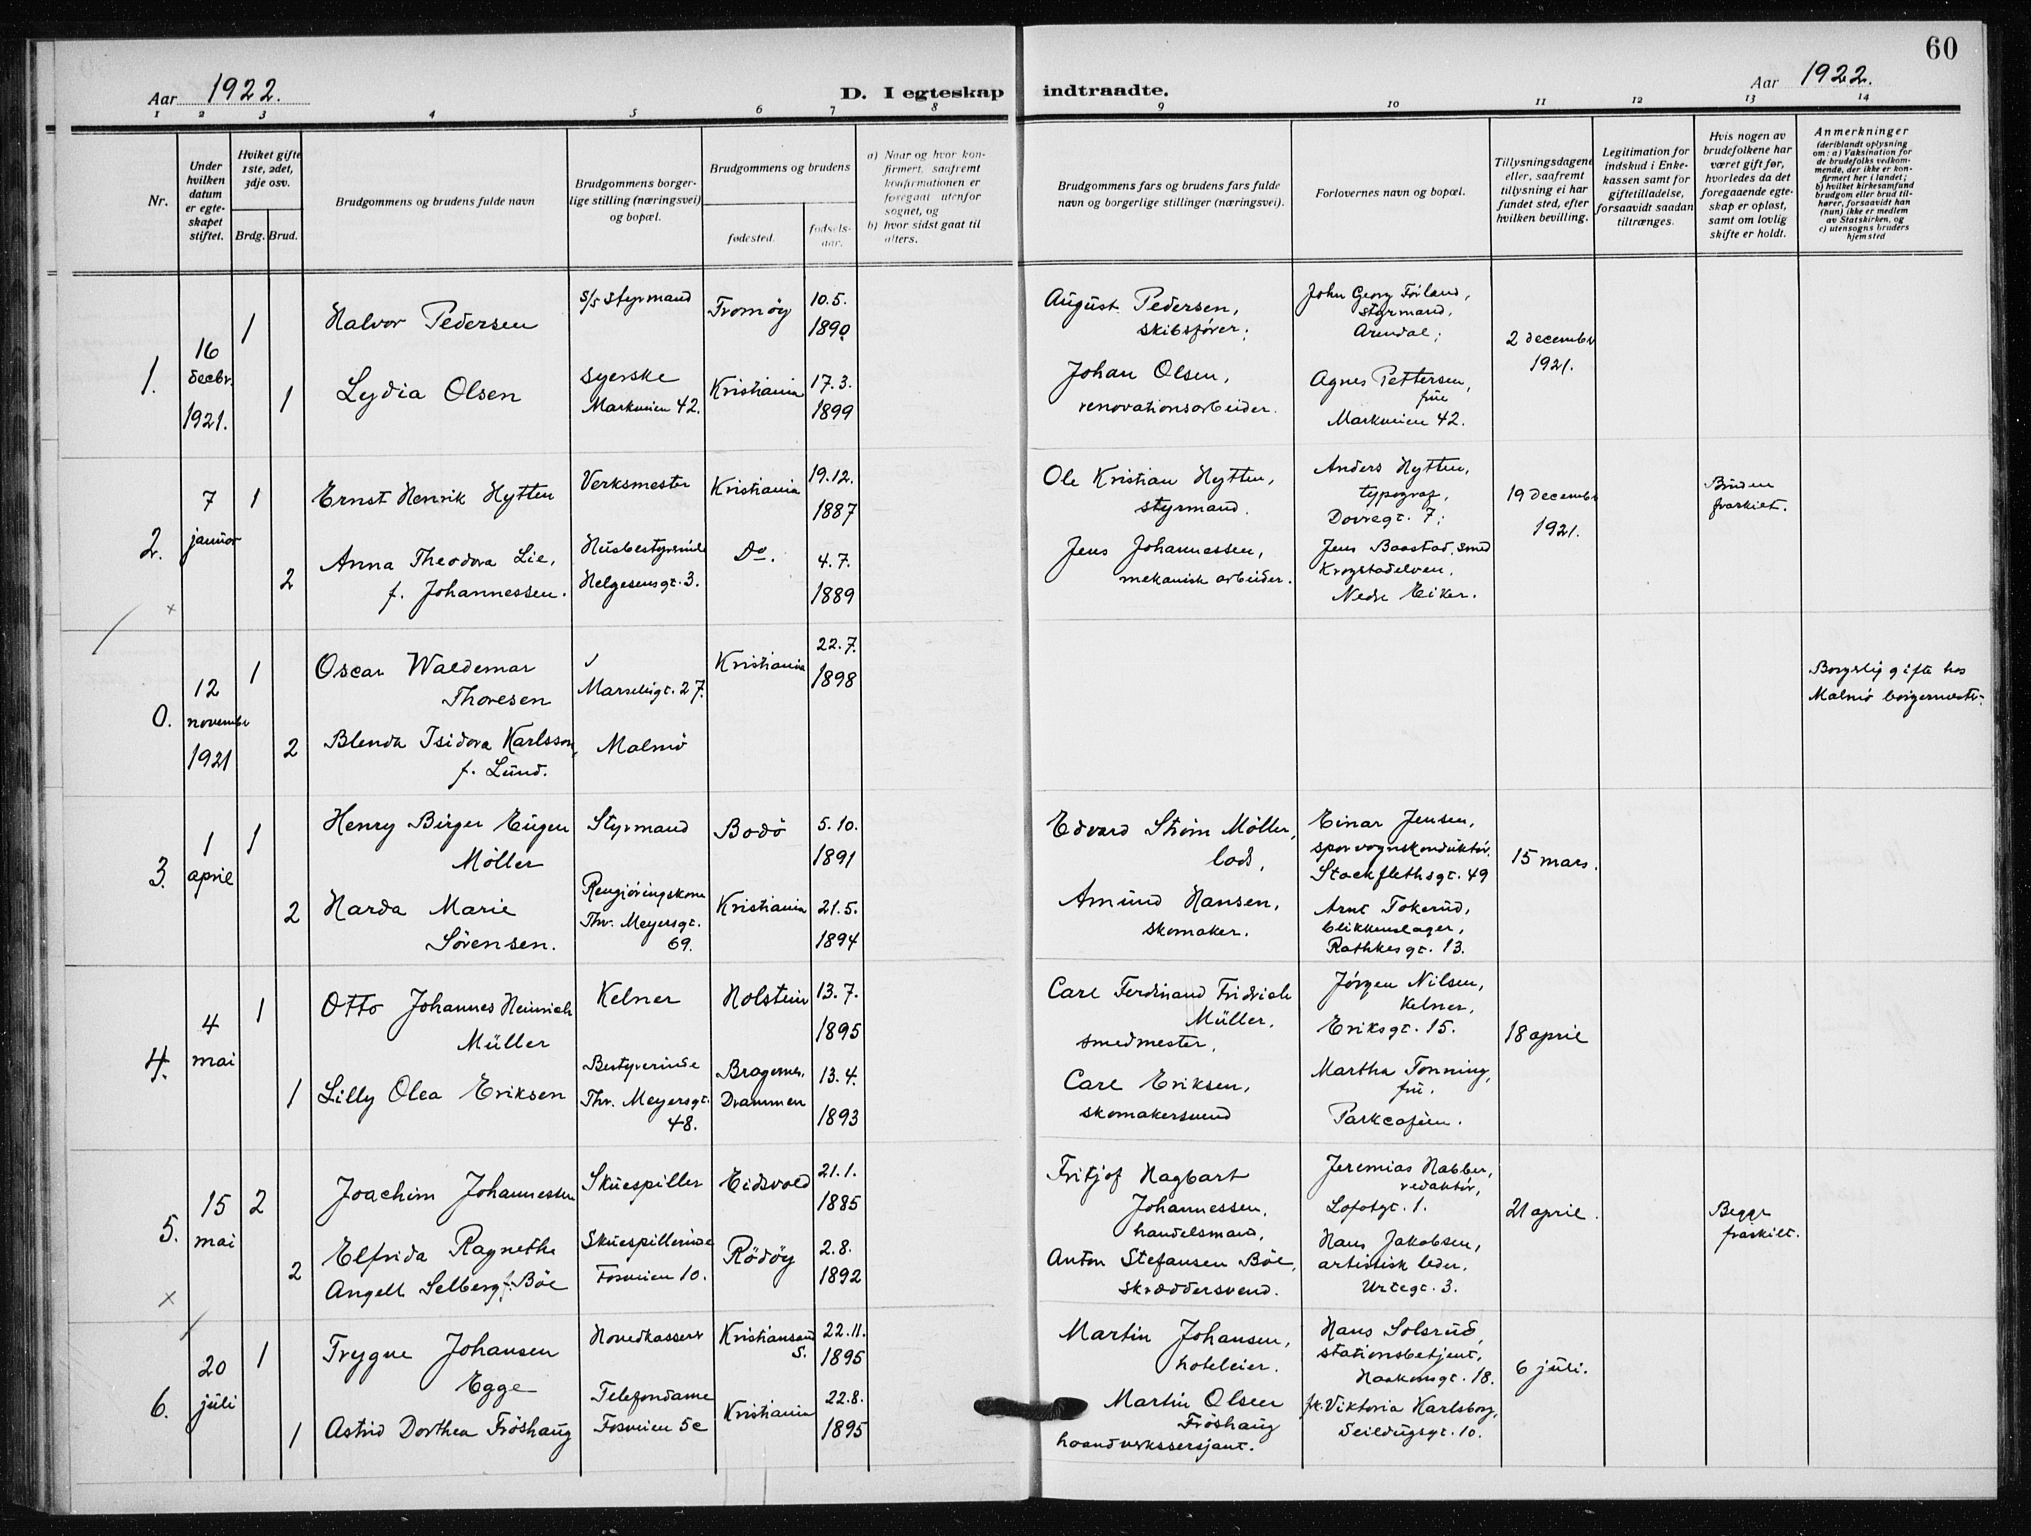 60
Aar 1922.
D. I egteskap indtraadte.
Aar 1922.
1 2 3 4 5 6 7 8 9 10 11 12 13 14
Nr.
Under
hvilken
datum
er egte-
skapet
stiftet.
Hviket gifte
1ste, 2det,
3dje osv.
Brdg. Brud.
Brudgommens og brudens fulde navn
Brudgommens borger-
lige stilling (næringsvei)
og bopæl.
Brudgommens og brudens
fødested.
fødsels-
aar.
a) Naar og hvor kon-
firmert, saafremt
konfirmationen er
foregaat utenfor
sognet, og
b) hvor sidst gaat til
alters.
Brudgommens fars og brudens fars fulde
navn og borgerlige stillinger (næringsvei).
Forlovernes navn og bopæl.
Tillysningsdagene
eller, saafremt
tillysning ei har
fundet sted, efter
hvilken bevilling.
Legitimation for
indskud i Enke-
kassen samt for
giftetilladelse,
forsaavidt saadan
tiltrænges.
Hvis nogen av
brudefolkene har
været gift før,
hvorledes da det
foregaaende egte-
skap er opløst,
samt om lovlig
skifte er holdt.
Anmerkninger
(deriblandt oplysning
om: a) Vaksination for
de brudefolks vedkom-
mende, der ikke er kon-
firmert her i landet;
b) hvilket kirkesamfund
brudgom eller brud til-
hører, forsaavidt han
(hun) ikke er medlem
av Statskirken, og
c) utensogns bruders
hjemsted
1.
16
decbr.
1921.
1
Halvor Pedersen
s/s styrmand
Tromøy
10.5.
1890
August Pedersen,
skibsfører;
John Georg Førland,
styrmand,
Arendal;
2 decembr
1921.
1
Lydia Olsen
syerske
Markveien 42.
Kristiania
17.3.
1899
Johan Olsen,
renovationsarbeider.
Agnes Pettersen,
frue
Markveien 42.
2.
7
januar
1
Ernst Henrik Hytten
Verksmester
Kristiania
19.12.
1887
Ole Kristian Hytten,
styrmand.
Anders Hytten,
typograf,
Dovregt. 7;
19 decembr
1921.
Bruden
fraskilt.
2
Anna Theodora Lie,
f. Johannessen.
Husbestyrerinde
Helgesensgt. 3.
Do.
4.7.
1889
Jens Johannessen,
mekanisk arbeider.
Jens Baastad, smed
Krogstadelven,
Nedre Eiker.
0.
12
novembr
1921
1
Oscar Waldemar
Thoresen
Marselisgt. 27.
Kristiania
22.7.
1898
Borgerlig gifte hos
Malmø borgermestr.
2
Blenda Isidora Karlsson,
f. Lund.
Malmø
3.
1
april
1
Henry Birger Eugen
Møller
Styrmand
Bodø
5.10.
1891
Edvard Strøm Møller,
lods,
Einar Jensen,
sporvognskonduktør,
Stockflethsgt. 49
15 mars.
2
Harda Marie
Sørensen.
Rengjøringskone
Thv. Meyersgt.
69.
Kristiania
21.5.
1894
Amund Hansen,
skomaker.
Arnt Tokerud,
blikkenslager,
Rathkesgt. 13.
4.
4
mai
1
Otto Johannes Heinrich
Müller
Kelner
Holstein
13.7.
1895
Carl Ferdinand Fridrich
Müller,
smedmester,
Jørgen Nilsen,
kelner,
Eriksgt. 15.
18 april
1
Lilly Olea Eriksen
Bestyrerinde
Thv. Meyersgt.
48.
Bragernes.
Drammen
13.4.
1893
Carl Eriksen,
skomakersvend
Martha Tonning,
fru.
Parkcafeen.
5.
15
mai
2
Joachim Johannessen
Skuespiller
Eidsvold
21.1.
1885
Fritjof Hagbart
Johannessen,
handelsmand,
Jeremias Habber,
redaktør,
Lofotgt. 1.
21 april.
Begge
fraskilt.
2
Elfrida Ragnethe
Angell Selberg f. Böe
Skuespillerinde
Fosveien 10.
Rödöy
2.8.
1892
Anton Stefansen Böe,
skræddersvend.
Hans Jakobsen,
artistisk leder,
Urtegt. 3.
6.
20
juli
1
Trygve Johansen
Egge
Hovedkasserer
Kristiansand
S.
22.11.
1895
Martin Johansen,
hoteleier.
Hans Solsrud,
stationsbetjent,
Haakonsgt. 18.
6 juli.
1
Astrid Dorthea Fröshaug
Telefondame
Fosveien 5c
Kristiania
22.8.
1895
Martin Olsen
Fröshaug
haandverkssersjant.
fr. Viktoria Karlsborg,
Seildugsgt. 10.